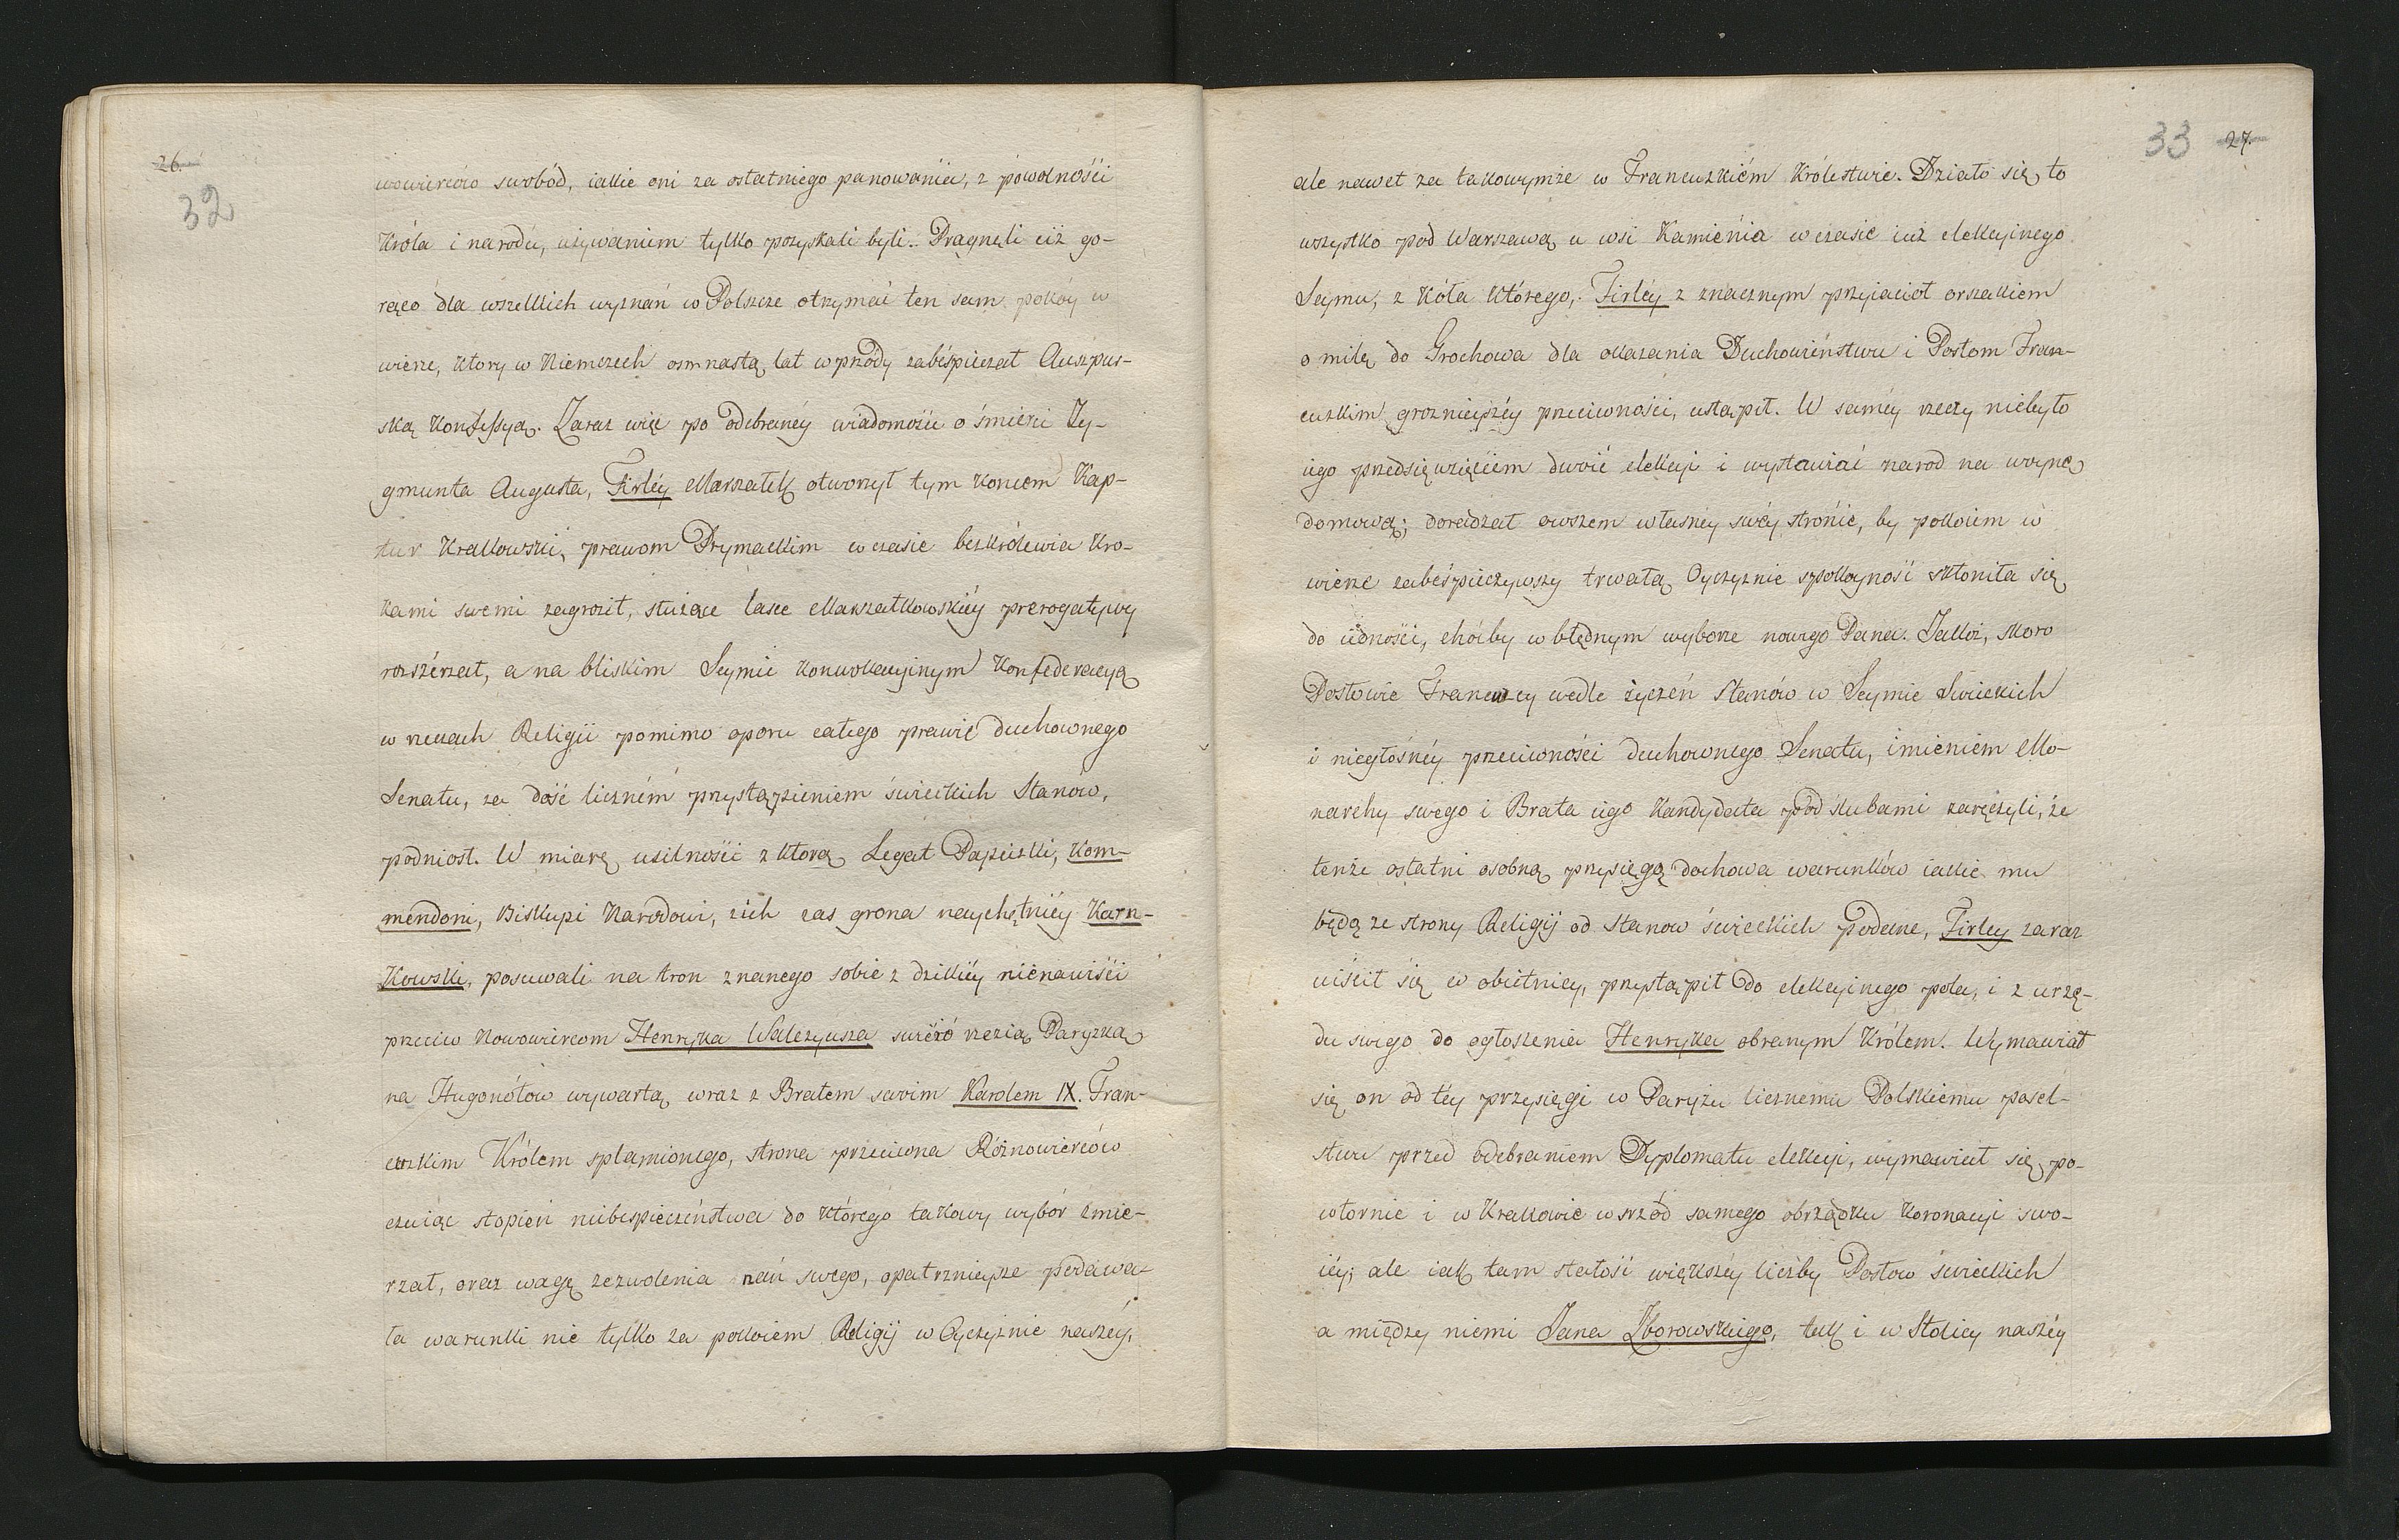 26.
32
wowierców swobód, iakie oni za ostatniego panowania, z powolności
Króla i narodu, używaniem tylko pozyskali byli. Pragnęli iiż go-
rąco dla wszelkich wyznań w Polszcze otrzymać ten sam pokóy w
wierze, ktory w Niemczech osmnastą lat wprzódy zabéśpieczał Auszpus-
ską Konfessyą. Zaraz więc po odebranéy wiadomości o śmierci Zy-
gmunta Augusta, Firléy Marszałek otworzył tym koncem Kap-
tur Krakowski, prawom Prymackim w czasie bezkrólewia kro-
kami swemi zagroził, służące lasce Marszałkowskiéy prerogatywy
rozszérzał, a na bliskim Seymie konwokacyjnym Konfederacyą
w rzeczach Religii pomimo oporu całego prawie duchownego
Senatu, za dość liczném przystąpieniem świeckich Stanów,
podniosł. W miarę usilności z ktorą Legat Papiezki, Kom-
mendoni, Biskupi Narodowi, z ich zas grona naychętniéy Karn-
kowski, posuwali na tron znanego sobie z dzikiéy nienawiści
przeciw Nowowiercom Henryka Walezyusza świéżo rzezią Paryzką
na Hugonótow wywartą wraz z Bratem swoim Karolem IX. Fran-
cuzkim Królem splamionego, strona przeciwna Różnowierców
czuiąc stopień niebespieczeństwa do którego takowy wybór zmie-
rzał, oraz wagę zezwolenia nań swego, opatrznieysze podawa-
ła warunki nie tylko za pokoiem Religij w Oyczyznie naszéy,
33 27.
ale nawet za takowymże w Francuzkiém Królestwie. Działo się to
wszystko pod Warszawą u wsi Kamiénia w czasie iuż elekcyinego
Seymu, z Koła którego, Firléy z znacznym przyiaciół orszakiem
o milę do Grochowa dla okazania Duchowieństwu i Posłom Fran-
cuzkim groznieyszéy przeciwności, ustąpił. W saméy rzeczy niebyło
iego przedsięwzięciem dwoić elekcyi i wystawiać narod na woynę
domową; doradzał owszem własnéy swéy stronie, by pokoiem w
wierze zabéśpieczywszy trwałą Oyczyznie spokoyność skłoniła się
do iedności, choćby w błędnym wyborze nowego Pana. Jakoż, skoro
Posłowie Francuzcy wedle życzeń Stanów w Seymie Swieckich
i niegłośnéy przeciwności duchownego Senatu, imieniem Mo-
narchy swego i Brata iego Kandydata pod ślubami zaręczyli, że
tenże ostatni osobną przysięgą dochowa warunków iakie mu
będą ze strony Religij od Stanow świeckich podane, Firley zaraz
uiścił się w obietnicy, przystąpił do elekcyinego pola, i z urzę-
du swego do ogłoszenia Henryka obranym Królem. Wymawiał
się on od téy przysięgi w Paryżu licznemu Polskiemu posel-
stwu przed odebraniem Dyplomatu elekcyi, wymawiał się po-
wtornie i w Krakowie wsrzód samego obrządku koronacyi swo-
iéy; ale iak tam stałość większéy liczby Posłow świeckich
a między niemi Jana Zborowskiego, tak i w Stolicy naszéy